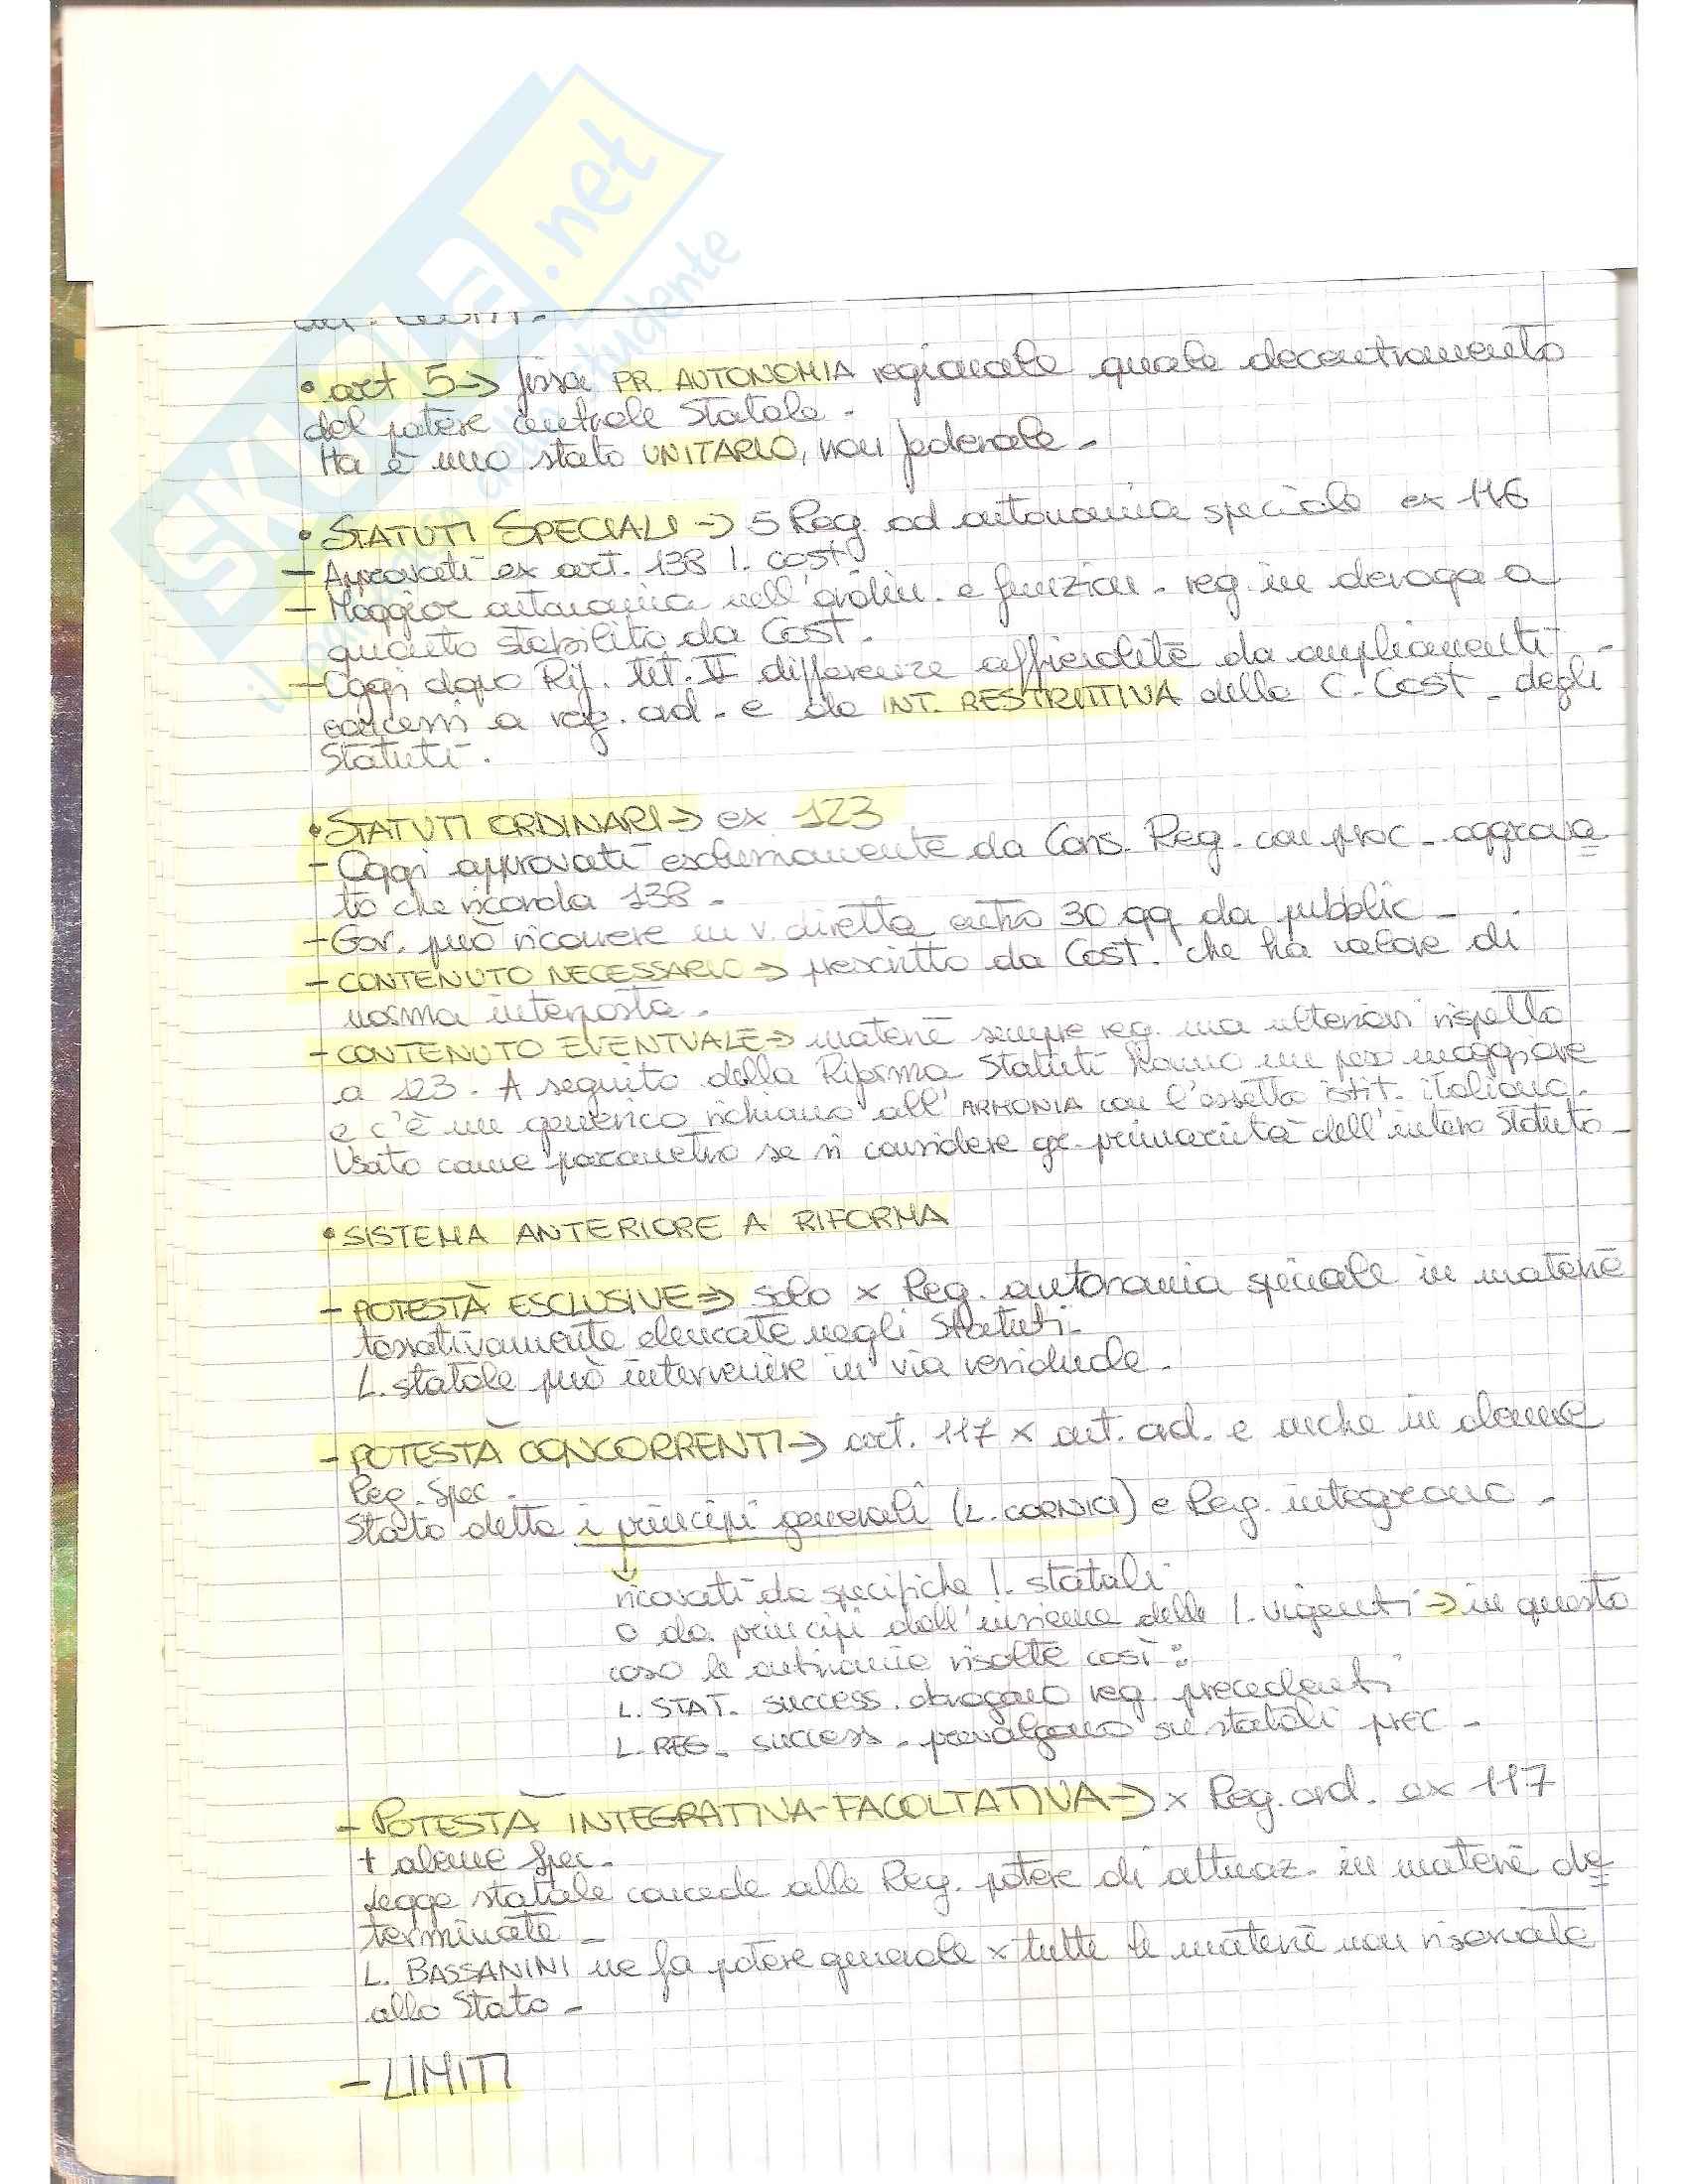 • art 5 → fissa PR. AUTONOMIA regionale quale decentramento
del potere centrale Statale.
Ma è uno stato UNITARIO, non federale.
• STATUTI SPECIALI → 5 Reg. ad autonomia speciale ex 116
- Approvati ex art. 138 l. cost.
- Maggior autonomia nell'ordin. e funzion. reg. in deroga a
quanto stabilito da Cost.
- Oggi dopo Rif. Tit. V differenze affievolite da ampliamenti
concessi a reg. ord. e da INT. RESTRITTIVA della C. Cost. degli
Statuti.
• STATUTI ORDINARI → ex 123
- Oggi approvati esclusivamente da Cons. Reg. con proc. aggrava
to che ricorda 138.
- Gov. può ricorrere in v. diretta entro 30 gg da pubblic.
- CONTENUTO NECESSARIO → prescritto da Cost. che ha valore di
norma interposta.
- CONTENUTO EVENTUALE → materie sempre reg. ma ulteriori rispetto
a 123. A seguito della Riforma Statuti hanno un peso maggiore
e c'è un generico richiamo all'ARMONIA con l'assetto istit. italiano.
Usato come parametro se si considera primarietà dell'intero Statuto.
• SISTEMA ANTERIORE A RIFORMA
- POTESTÀ ESCLUSIVE → solo x Reg. autonomia speciale in materie
tassativamente elencate negli Statuti.
L. statale può intervenire in via residuale.
- POTESTÀ CONCORRENTI → art. 117 x aut. ord. e anche in alcune
Reg. Spec.
Stato detta i principi generali (L. CORNICI) e Reg. integrano.
↓
ricavati da specifiche l. statali
o da principi dall'insieme delle l. vigenti → in questo
caso le antinomie risolte così:
L. STAT. success. abrogano reg. precedenti
L. REG. success. prevalgono su statali prec.
- POTESTÀ INTEGRATIVA-FACOLTATIVA → x Reg. ord. ex 117
+ alcune Spec.
Legge statale concede alle Reg. potere di attuaz. in materie de
terminate.
L. BASSANINI ne fa potere generale x tutte le materie non riservate
allo Stato.
- LIMITI
SKUOLA.net